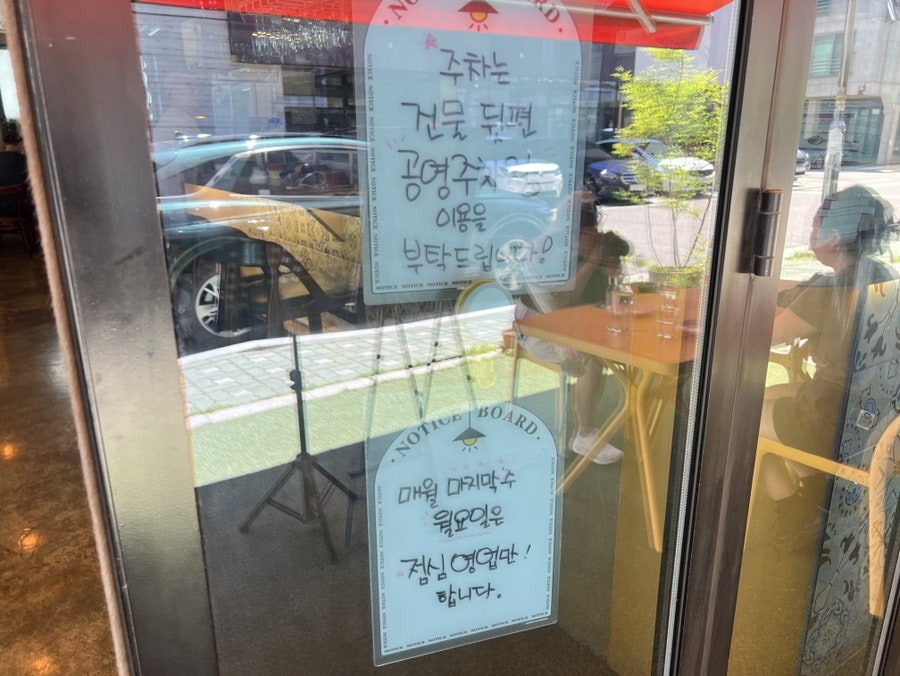 NOTICE BOARD
주차는
건물 뒤편
공영주차장
이용을
부탁드립니다.
NOTICE NOTICE NOTICE NOTICE
NOTICE BOARD
매월 마지막주
월요일은
점심 영업만!
합니다.
NOTICE NOTICE NOTICE NOTICE NOTICE NOTICE